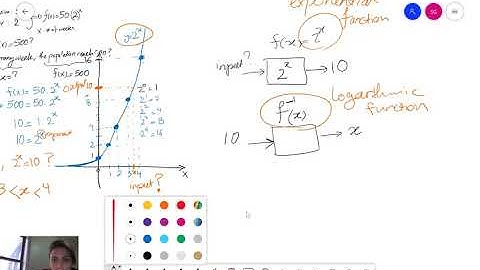 f(x)=50(2)^x
x = # of weeks
(x)=500?
many weeks, the population reach 500?
x=?
f(x)=500
f(x)=50·2^x
500=50·2^x
10=1·2^x
10=2^x
2^x=10?
3<x<4
Exponent
output
y=2^x
16
10
8
4
2
1
1 2 3 x 4
x
input?
2^0=1
2^1=2
2^2=4
2^3=8
2^4=16
exponential
function
f(x)=2^x
input?
2^x
10
f^-1(x)
Logarithmic
function
10
x